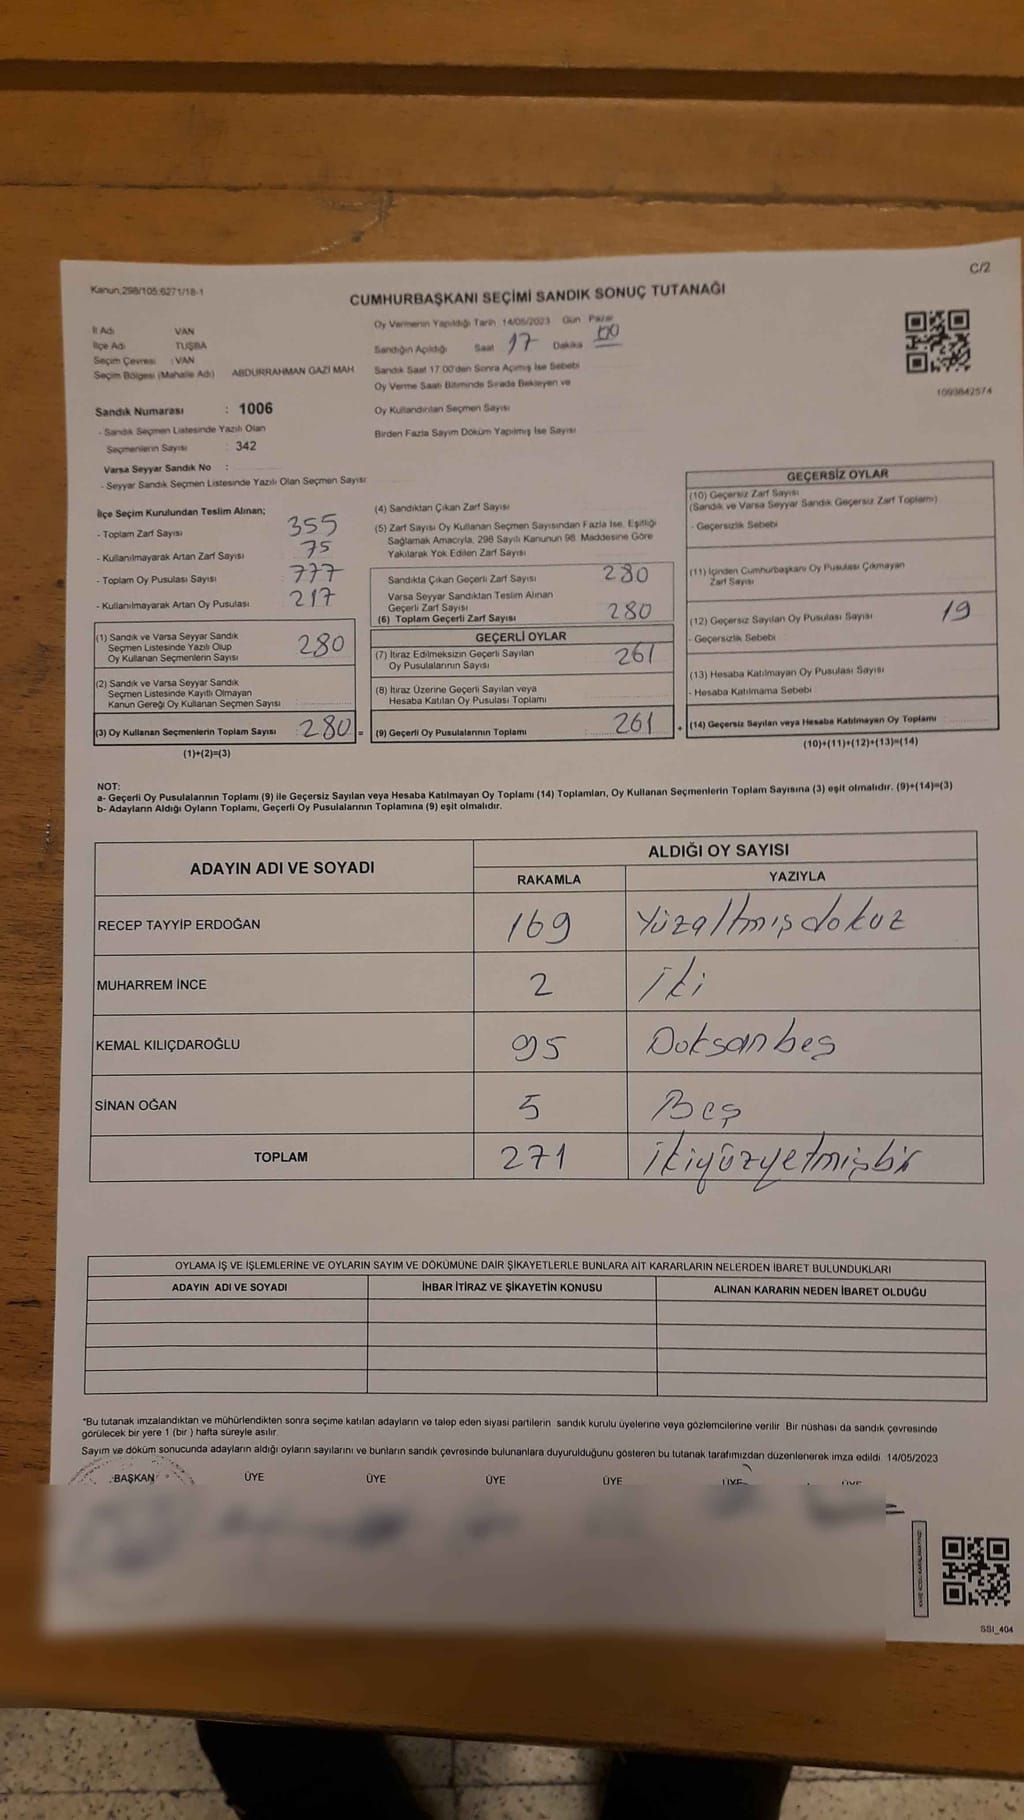 C/2
Kanun,298/105:6271/18-1
CUMHURBAŞKANI SEÇİMİ SANDIK SONUÇ TUTANAĞI
İl Adı VAN
İlçe Adı TUŞBA
Seçim Çevresi : VAN
Seçim Bölgesi (Mahalle Adı) ABDURRAHMAN GAZİ MAH
Oy Vermenin Yapıldığı Tarih 14/05/2023 Gün Pazar
Sandığın Açıldığı Saat 17 Dakika 00
Sandık Saat 17.00'den Sonra Açılmış İse Sebebi
Oy Verme Saati Bitiminde Sırada Bekleyen ve
Oy Kullandırılan Seçmen Sayısı
Birden Fazla Sayım Döküm Yapılmış İse Sayısı
1093842574
Sandık Numarası : 1006
- Sandık Seçmen Listesinde Yazılı Olan
Seçmenlerin Sayısı : 342
Varsa Seyyar Sandık No :
- Seyyar Sandık Seçmen Listesinde Yazılı Olan Seçmen Sayısı
İlçe Seçim Kurulundan Teslim Alınan;
- Toplam Zarf Sayısı 355
- Kullanılmayarak Artan Zarf Sayısı 75
- Toplam Oy Pusulası Sayısı 777
- Kullanılmayarak Artan Oy Pusulası 217
(1) Sandık ve Varsa Seyyar Sandık
Seçmen Listesinde Yazılı Olup
Oy Kullanan Seçmenlerin Sayısı 280
(2) Sandık ve Varsa Seyyar Sandık
Seçmen Listesinde Kayıtlı Olmayan
Kanun Gereği Oy Kullanan Seçmen Sayısı
(3) Oy Kullanan Seçmenlerin Toplam Sayısı 280 =
(1)+(2)=(3)
(4) Sandıktan Çıkan Zarf Sayısı
(5) Zarf Sayısı Oy Kullanan Seçmen Sayısından Fazla İse, Eşitliği
Sağlamak Amacıyla, 298 Sayılı Kanunun 98. Maddesine Göre
Yakılarak Yok Edilen Zarf Sayısı
Sandıkta Çıkan Geçerli Zarf Sayısı 280
Varsa Seyyar Sandıktan Teslim Alınan
Geçerli Zarf Sayısı
(6) Toplam Geçerli Zarf Sayısı 280
GEÇERLİ OYLAR
(7) İtiraz Edilmeksizin Geçerli Sayılan
Oy Pusulalarının Sayısı 261
(8) İtiraz Üzerine Geçerli Sayılan veya
Hesaba Katılan Oy Pusulası Toplamı
(9) Geçerli Oy Pusulalarının Toplamı : 261 +
GEÇERSİZ OYLAR
(10) Geçersiz Zarf Sayısı
(Sandık ve Varsa Seyyar Sandık Geçersiz Zarf Toplamı)
- Geçersizlik Sebebi
(11) İçinden Cumhurbaşkanı Oy Pusulası Çıkmayan
Zarf Sayısı
(12) Geçersiz Sayılan Oy Pusulası Sayısı 19
- Geçersizlik Sebebi
(13) Hesaba Katılmayan Oy Pusulası Sayısı
- Hesaba Katılmama Sebebi
(14) Geçersiz Sayılan veya Hesaba Katılmayan Oy Toplamı
(10)+(11)+(12)+(13)=(14)
NOT:
a- Geçerli Oy Pusulalarının Toplamı (9) ile Geçersiz Sayılan veya Hesaba Katılmayan Oy Toplamı (14) Toplamları, Oy Kullanan Seçmenlerin Toplam Sayısına (3) eşit olmalıdır. (9)+(14)=(3)
b- Adayların Aldığı Oyların Toplamı, Geçerli Oy Pusulalarının Toplamına (9) eşit olmalıdır.
ADAYIN ADI VE SOYADI
ALDIĞI OY SAYISI
RAKAMLA YAZIYLA
RECEP TAYYİP ERDOĞAN 169 Yüzaltmışdokuz
MUHARREM İNCE 2 İki
KEMAL KILIÇDAROĞLU 95 Doksanbeş
SİNAN OĞAN 5 Beş
TOPLAM 271 İkiyüzyetmişbir
OYLAMA İŞ VE İŞLEMLERİNE VE OYLARIN SAYIM VE DÖKÜMÜNE DAİR ŞİKAYETLERLE BUNLARA AİT KARARLARIN NELERDEN İBARET BULUNDUKLARI
ADAYIN ADI VE SOYADI İHBAR İTİRAZ VE ŞİKAYETİN KONUSU ALINAN KARARIN NEDEN İBARET OLDUĞU
*Bu tutanak imzalandıktan ve mühürlendikten sonra seçime katılan adayların ve talep eden siyasi partilerin sandık kurulu üyelerine veya gözlemcilerine verilir. Bir nüshası da sandık çevresinde
görülecek bir yere 1 (bir ) hafta süreyle asılır.
Sayım ve döküm sonucunda adayların aldığı oyların sayılarını ve bunların sandık çevresinde bulunanlara duyurulduğunu gösteren bu tutanak tarafımızdan düzenlenerek imza edildi. 14/05/2023
BAŞKAN ÜYE ÜYE ÜYE ÜYE ÜYE ÜYE
SSI_404